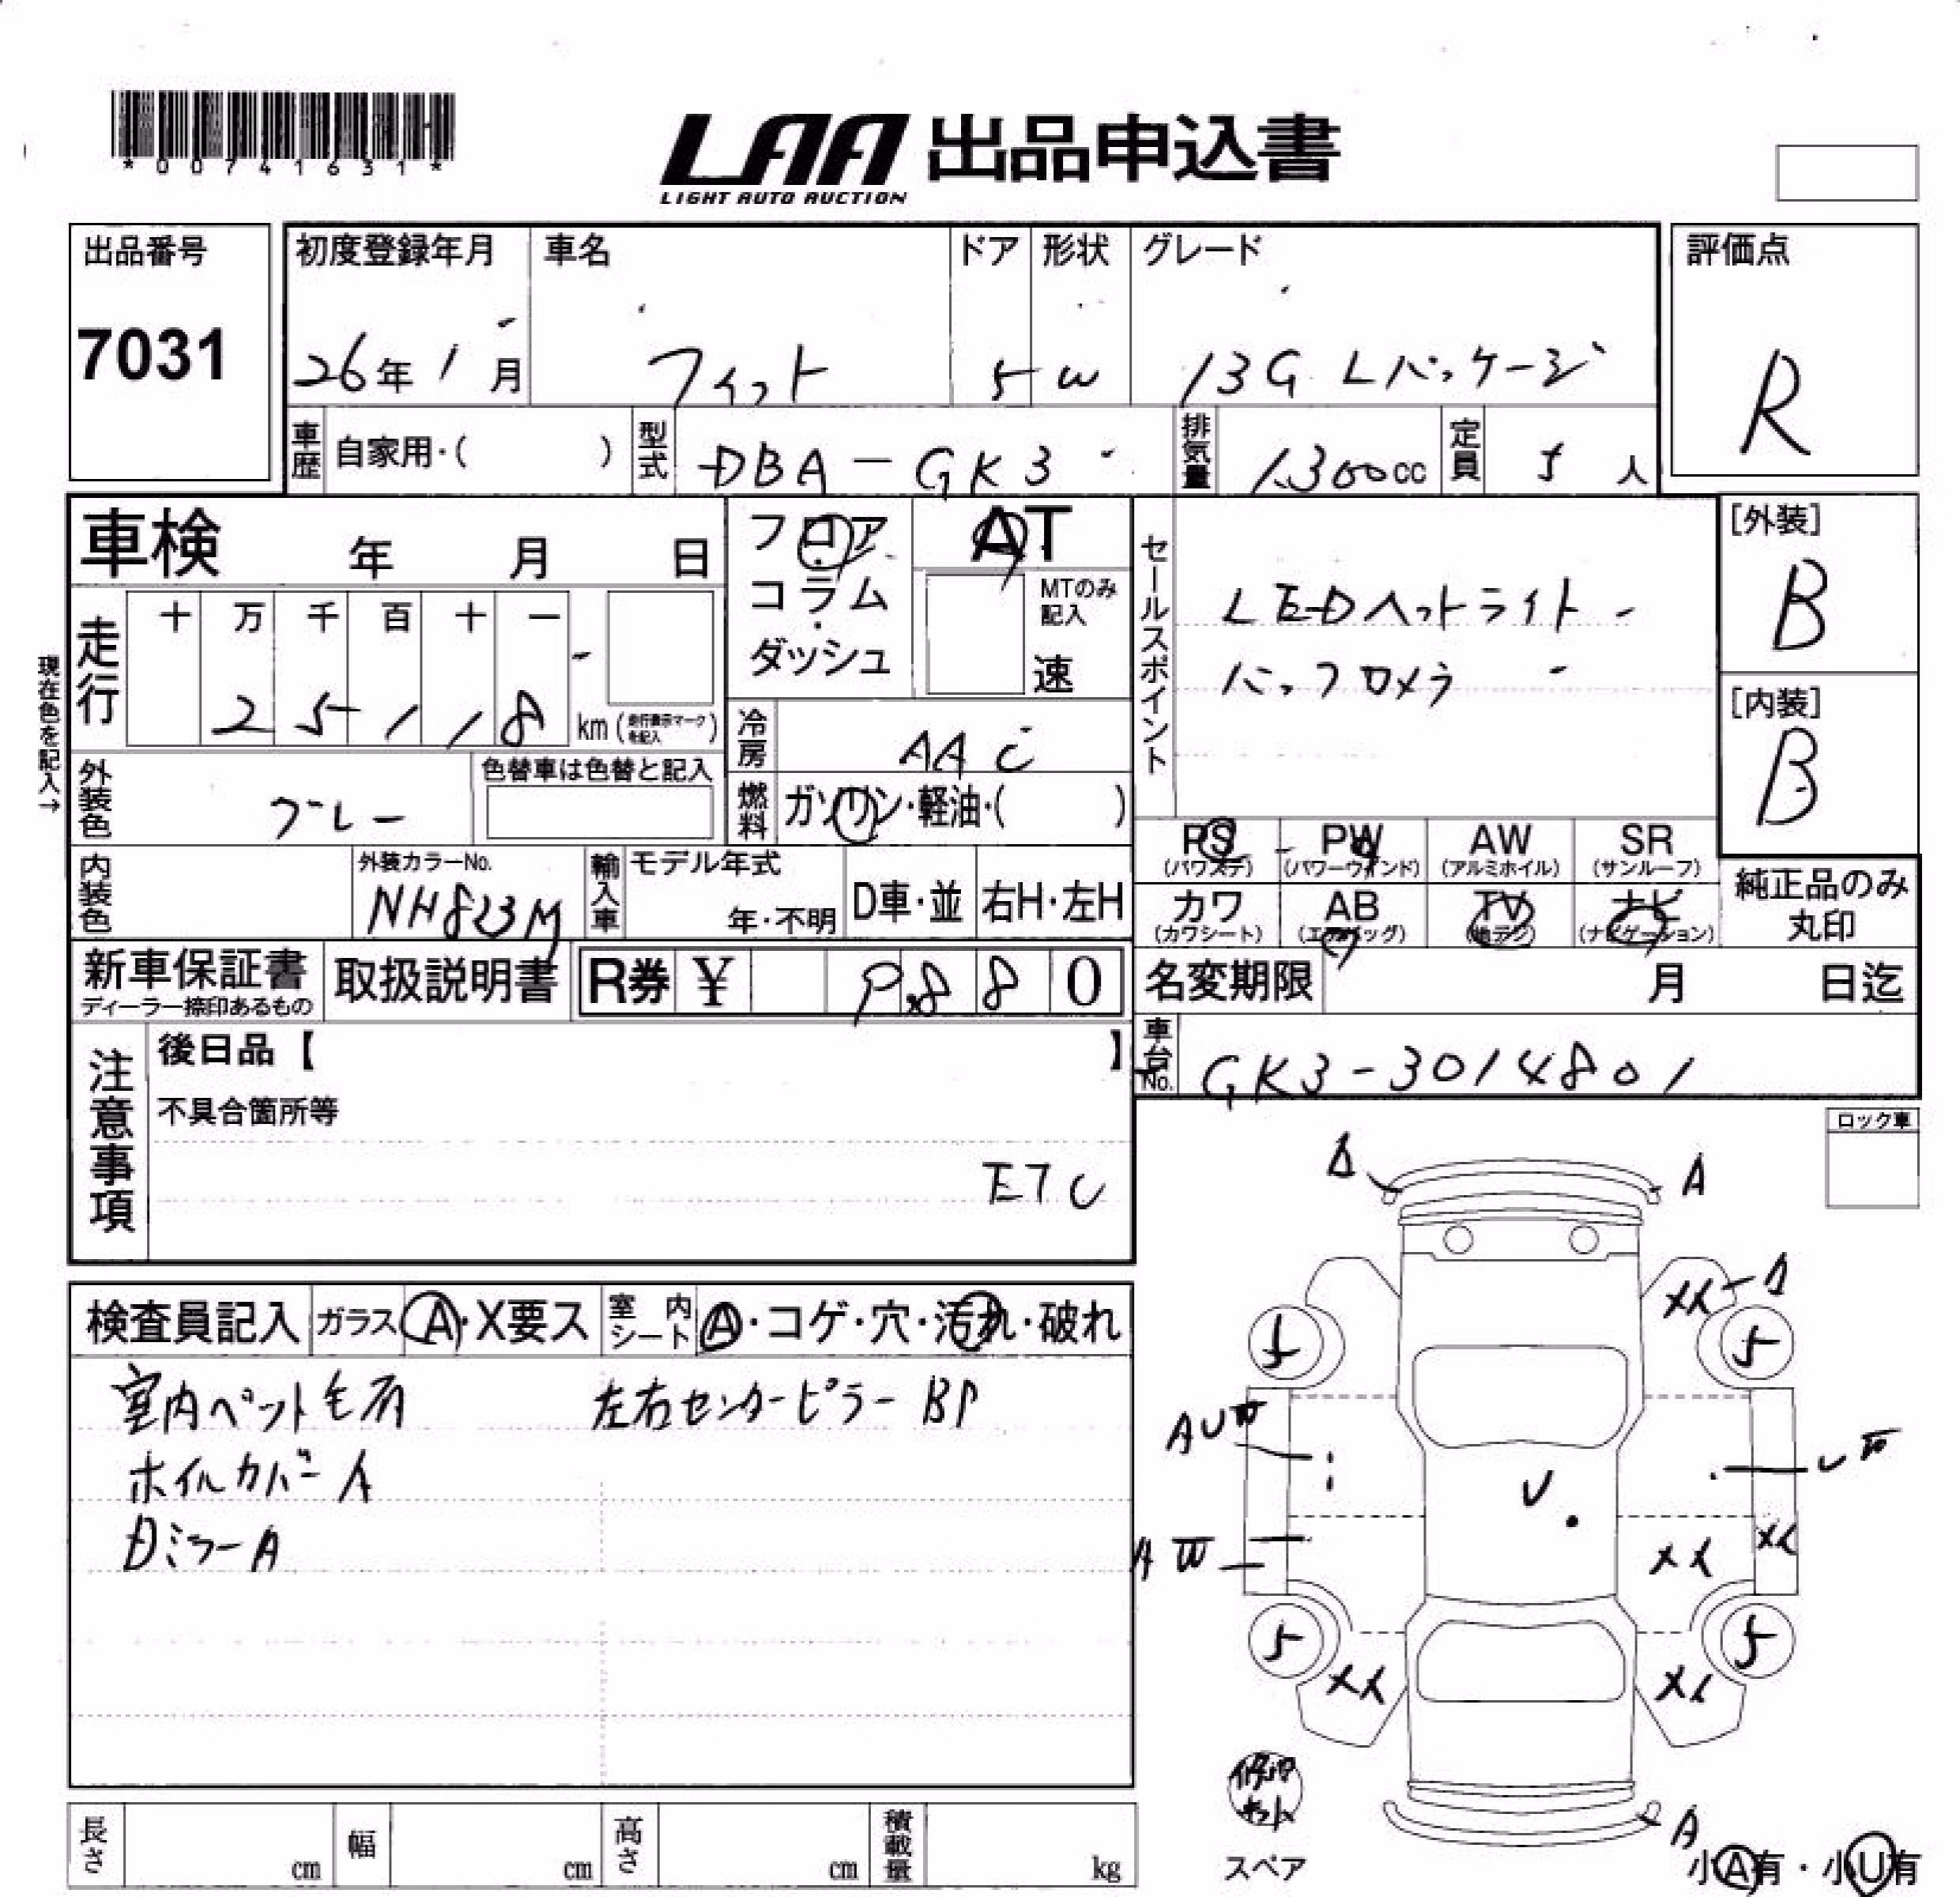 *00741631*
LAA 出品申込書
LIGHT AUTO AUCTION
出品番号 初度登録年月 車名 ドア 形状 グレード 評価点
7031 26年1月 フィット 5 W 13G Lパッケージ R
車歴 自家用・( ) 型式 DBA-GK3 排気量 1300cc 定員 5人
車検 年 月 日 フロア AT
コラム MTのみ記入
ダッシュ 速
セールスポイント
LEDヘットライト
バックカメラ
[外装] B
[内装] B
走行 十 万 千 百 十 一
25118 km(走行表示マークを記入)
現在色を記入→
冷房 AAC
外装色 グレー 色替車は色替と記入
燃料 ガソリン・軽油・( )
PS PW AW SR
(パワステ) (パワーウインド) (アルミホイル) (サンルーフ)
カワ AB TV ナビ
(カワシート) (エアバッグ) (地デジ) (ナビゲーション)
純正品のみ
丸印
内装色 外装カラーNo. NH823M 輸入車 モデル年式 年・不明 D車・並 右H・左H
新車保証書 取扱説明書 R券 ¥ 9880
ディーラー捺印あるもの
名変期限 月 日迄
車台No. GK3-3014801
注意事項 後日品【 】
不具合箇所等
ETC
ロック車
検査員記入 ガラス A・X要ス 室内シート A・コゲ・穴・汚れ・破れ
室内ペット毛有 左右センターピラーBP
ホイルカバーA
DミラーA
A
XX
5 5
AU
U
U
XX XX
A
5 5
XX XX
修理キット
スペア
A
小A有・小U有
長さ cm 幅 cm 高さ cm 積載量 kg